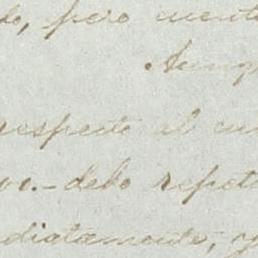 do, pero cuent
Aunq
respecto al cu
vo.- debo repet
diatamente, y